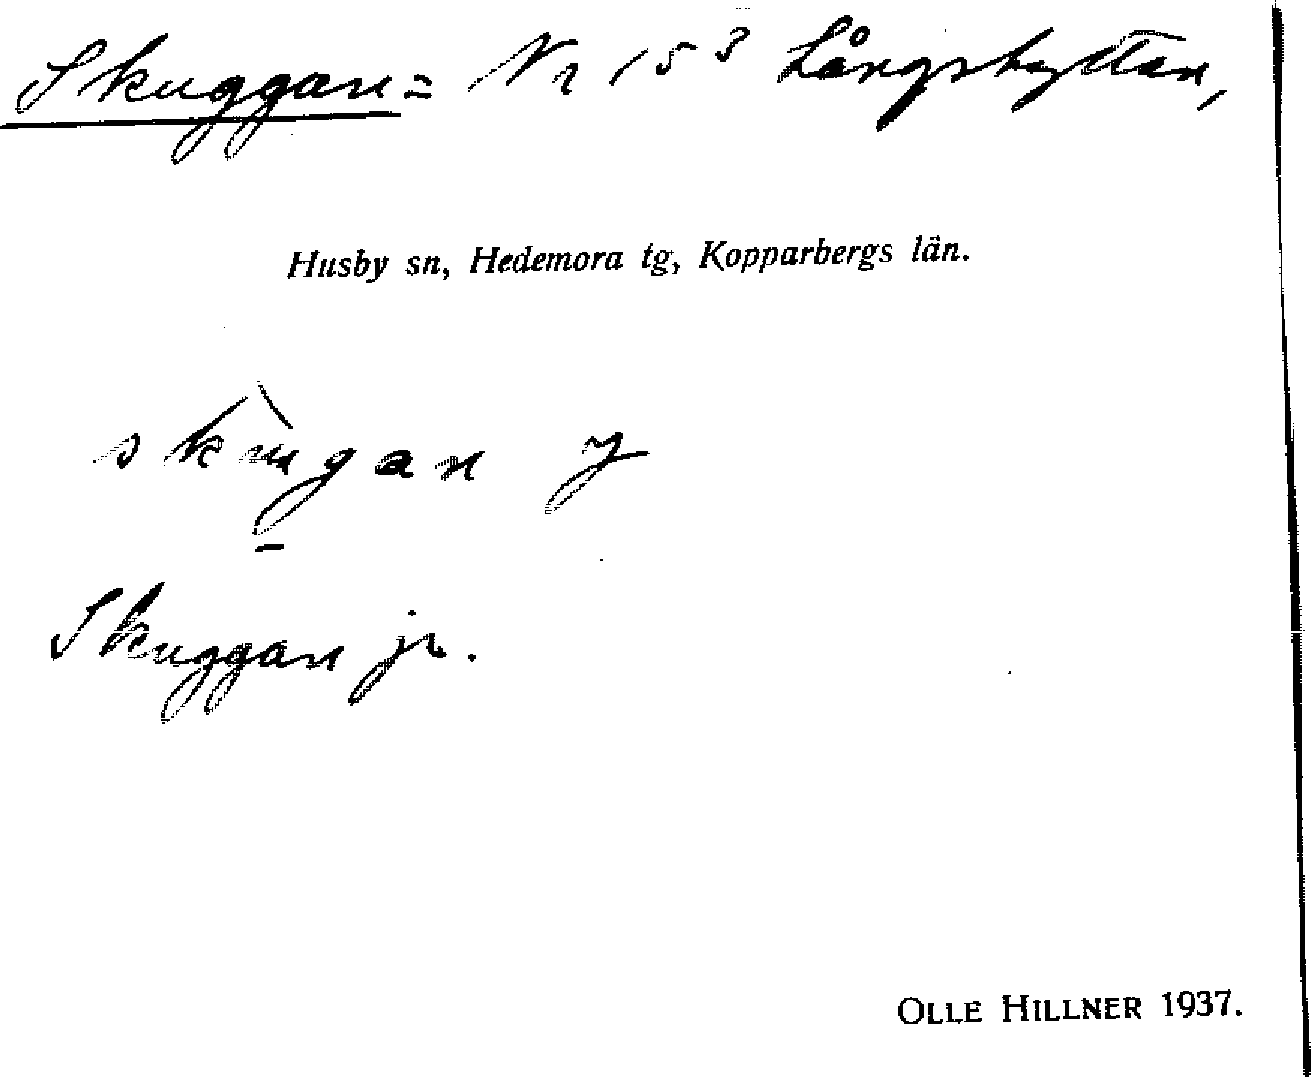 Skuggan = Nr 153 Långshyttan,
Husby sn, Hedemora tg, Kopparbergs län.
Skuggan jr.
OLLE HILLNER 1937.